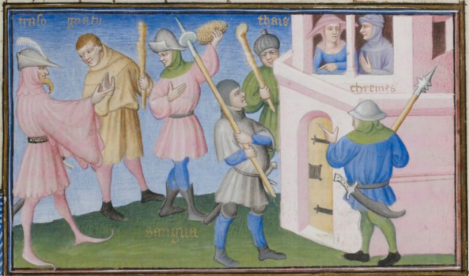 traso gnato thais
chremes
sanga